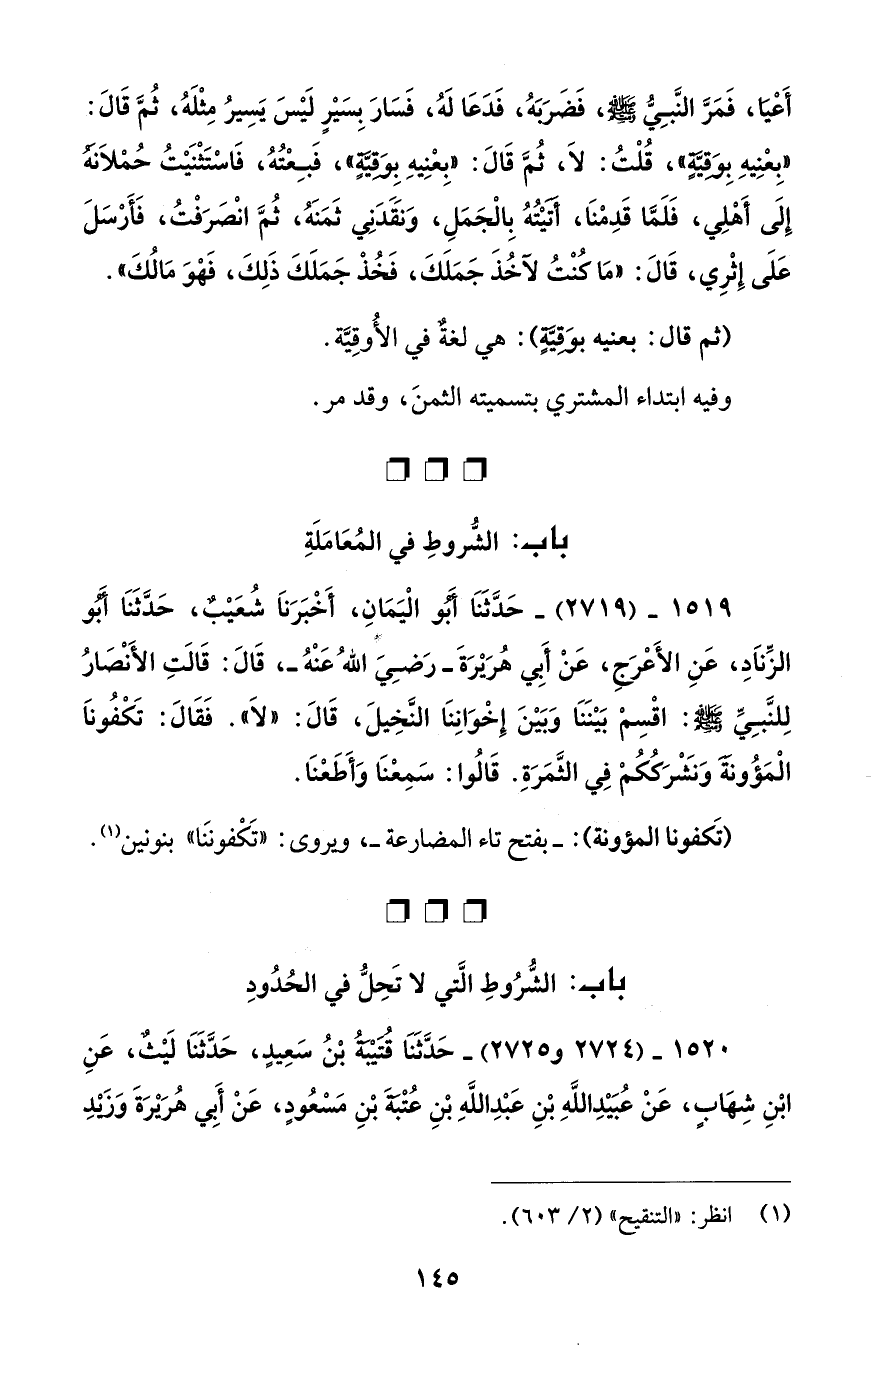 أَعْيَا، فَمَرَّ النَّبِيُّ ﷺ، فَضَرَبَهُ، فَدَعَا لَهُ، فَسَارَ بِسَيْرٍ لَيْسَ يَسِيرُ مِثْلَهُ، ثُمَّ قَالَ:
«بِعْنِيهِ بِوَقِيَّةٍ»، قُلْتُ: لاَ، ثُمَّ قَالَ: «بِعْنِيهِ بِوَقِيَّةٍ»، فَبِعْتُهُ، فَاسْتَثْنَيْتُ حُمْلاَنَهُ
إِلَى أَهْلِي، فَلَمَّا قَدِمْنَا، أَتَيْتُهُ بِالْجَمَلِ، وَنَقَدَنِي ثَمَنَهُ، ثُمَّ انْصَرَفْتُ، فَأَرْسَلَ
عَلَى إِثْرِي، قَالَ: «مَا كُنْتُ لآخُذَ جَمَلَكَ، فَخُذْ جَمَلَكَ ذَلِكَ، فَهْوَ مَالُكَ».
(ثم قال: بعنيه بوَقِيَّةٍ): هي لغةٌ في الأُوقِيَّة.
وفيه ابتداء المشتري بتسميته الثمنَ، وقد مر.
باب: الشُّروطِ في المُعَامَلَةِ
١٥١٩ ـ (٢٧١٩) ـ حَدَّثَنَا أَبُو الْيَمَانِ، أَخْبَرَنَا شُعَيْبٌ، حَدَّثَنَا أَبُو
الزِّنَادِ، عَنِ الأَعْرَجِ، عَنْ أَبِي هُرَيْرَةَ ـ رَضِيَ اللهُ عَنْهُ ـ، قَالَ: قَالَتِ الأَنْصَارُ
لِلنَّبِيِّ ﷺ: اقْسِمْ بَيْنَنَا وَبَيْنَ إِخْوَانِنَا النَّخِيلَ، قَالَ: «لاَ». فَقَالَ: تَكْفُونَا
الْمَؤُونَةَ وَنَشْرَكُكُمْ فِي الثَّمَرَةِ. قَالُوا: سَمِعْنَا وَأَطَعْنَا.
(تَكفونا المؤونة): ـ بفتح تاء المضارعة ـ، ويروى: «تَكْفونَنَا» بنونين(١).
باب: الشُّرُوطِ الَّتي لا تَحِلُّ في الحُدُودِ
١٥٢٠ ـ (٢٧٢٤ و٢٧٢٥) ـ حَدَّثَنَا قُتَيْبَةُ بْنُ سَعِيدٍ، حَدَّثَنَا لَيْثٌ، عَنِ
ابْنِ شِهَابٍ، عَنْ عُبَيْدِاللَّهِ بْنِ عَبْدِاللَّهِ بْنِ عُتْبَةَ بْنِ مَسْعُودٍ، عَنْ أَبِي هُرَيْرَةَ وَزَيْدِ
(١) انظر: «التنقيح» (٢/ ٦٠٣).
١٤٥